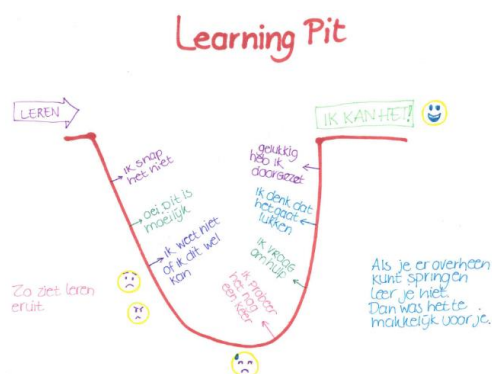 Learning Pit
LEREN
IK KAN HET!
ik snap
het niet
oei, dit is
moeilijk
ik weet niet
of ik dit wel
kan
ik probeer
het nog
een keer
ik vraag
om hulp
ik denk dat
het gaat
lukken
gelukkig
heb ik
doorgezet
Zo ziet leren
eruit
Als je er overheen
kunt springen
leer je niet.
Dan was het te
makkelijk voor je.